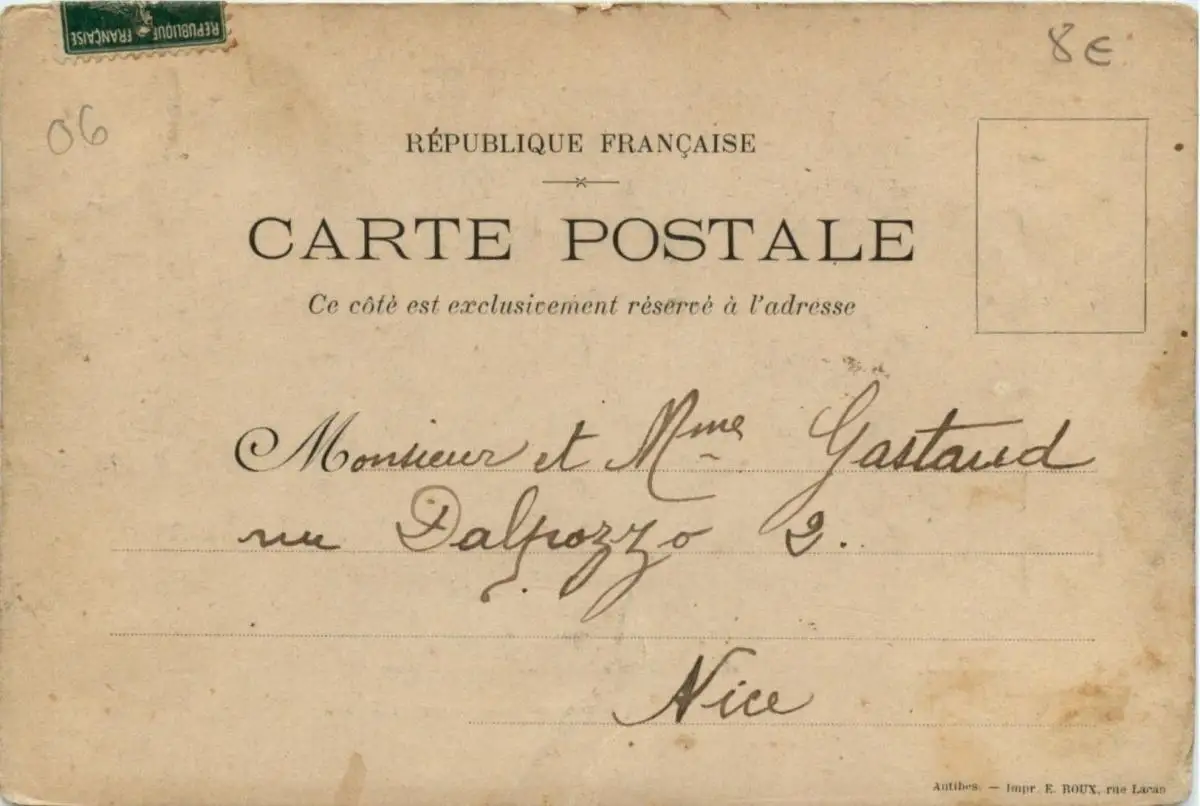 RÉPUBLIQUE FRANÇAISE
8€
06
RÉPUBLIQUE FRANÇAISE
CARTE POSTALE
Ce côté est exclusivement réservé à l'adresse
Monsieur et Mme Gastaud
rue Dalpozzo 2.
Nice
Antibes. — Impr. E. ROUX, rue Lacan